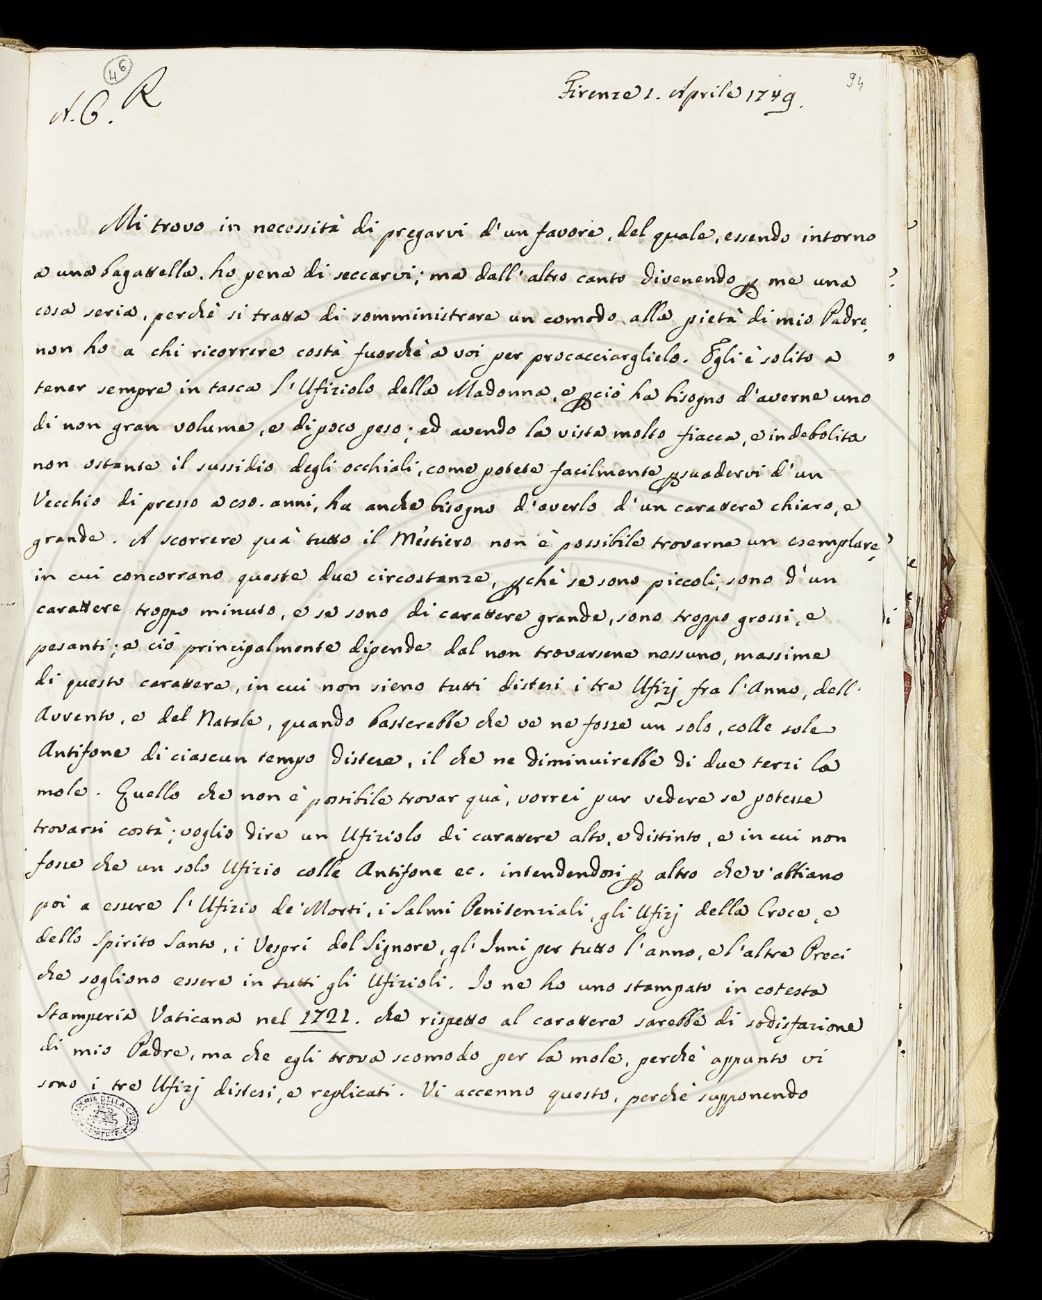 46
94
A. C. R
Firenze 1. Aprile 1749.
Mi trovo in necessità di pregarvi d'un favore, del quale, essendo intorno
a una bagattella, ho pena di seccarvi; ma dall'altro canto divenendo p me una
cosa seria, perchè si tratta di somministrare un comodo alla pietà di mio Padre,
non ho a chi ricorrere costà fuorchè a voi per procacciarglielo. Egli è solito a
tener sempre in tasca l'Ufiziolo della Madonna, e pciò ha bisogno d'averne uno
di non gran volume, e di poco peso; ed avendo la vista molto fiacca, e indebolita
non ostante il sussidio degli occhiali, come potete facilmente psuadervi d'un
Vecchio di presso a 80. anni, ha anche bisogno d'averlo d'un carattere chiaro, e
grande. A scorrere quà tutto il Mestiero non è possibile trovarne un esemplare,
in cui concorrano queste due circostanze, pchè se sono piccoli, sono d'un
carattere troppo minuto, e se sono di carattere grande, sono troppo grossi, e
pesanti; e ciò principalmente dipende dal non trovarsene nessuno, massime
di questo carattere, in cui non sieno tutti distesi i tre Ufizj fra l'Anno, dell'
Avvento, e del Natale, quando basterebbe che ve ne fosse un solo, colle sole
Antifone di ciascun tempo distese, il che ne diminuirebbe di due terzi la
mole. Quello che non è possibile trovar quà, vorrei pur vedere se potesse
trovarsi costà; voglio dire un Ufiziolo di carattere alto, e distinto, e in cui non
fosse che un solo Ufizio colle Antifone ec. intendendosi p altro che v'abbiano
poi a essere l'Ufizio de' Morti, i Salmi Penitenziali, gli Ufizj della Croce, e
dello Spirito Santo, i Vespri del Signore, gl'Inni per tutto l'anno, e l'altre Preci
che sogliono essere in tutti gli Ufizioli. Io ne ho uno stampato in cotesta
Stamperia Vaticana nel 1721. che rispetto al carattere sarebbe di sodisfazione
di mio Padre, ma che egli trova scomodo per la mole, perchè appunto vi
sono i tre Ufizj distesi, e replicati. Vi accenno questo, perchè supponendo